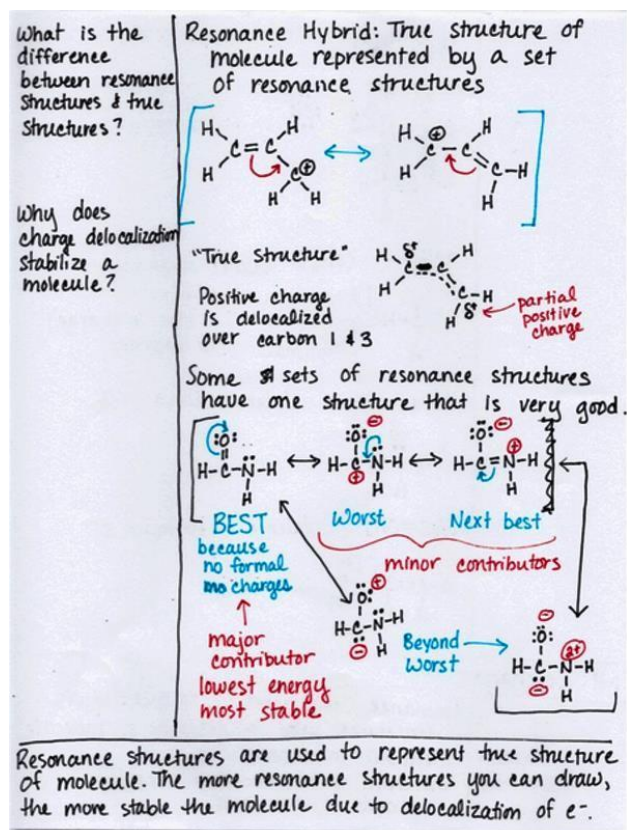 What is the
difference
between resonance
structures & true
structures?
Why does
charge delocalization
stabilize a
molecule?
Resonance Hybrid: True structure of
molecule represented by a set
of resonance structures
H H
C=C
H C⊕
H H
H ⊕ H
C-C
H C-H
H
"True Structure"
Positive charge
is delocalized
over carbon 1 & 3
H δ+ H
C C
H C-H
H δ+
partial
positive
charge
Some sets of resonance structures
have one structure that is very good.
:O:
H-C-N-H
H
⊖
:O:
H-C-N-H
⊕ H
⊖
:O: ⊕
H-C=N-H
H
BEST
because
no formal
charges
Worst
Next best
minor contributors
major
contributor
lowest energy
most stable
⊕
:O:
H-C-N-H
⊖ H
Beyond
Worst
⊖
:O:
2+
H-C-N-H
⊖ H
Resonance structures are used to represent true structure
of molecule. The more resonance structures you can draw,
the more stable the molecule due to delocalization of e-.